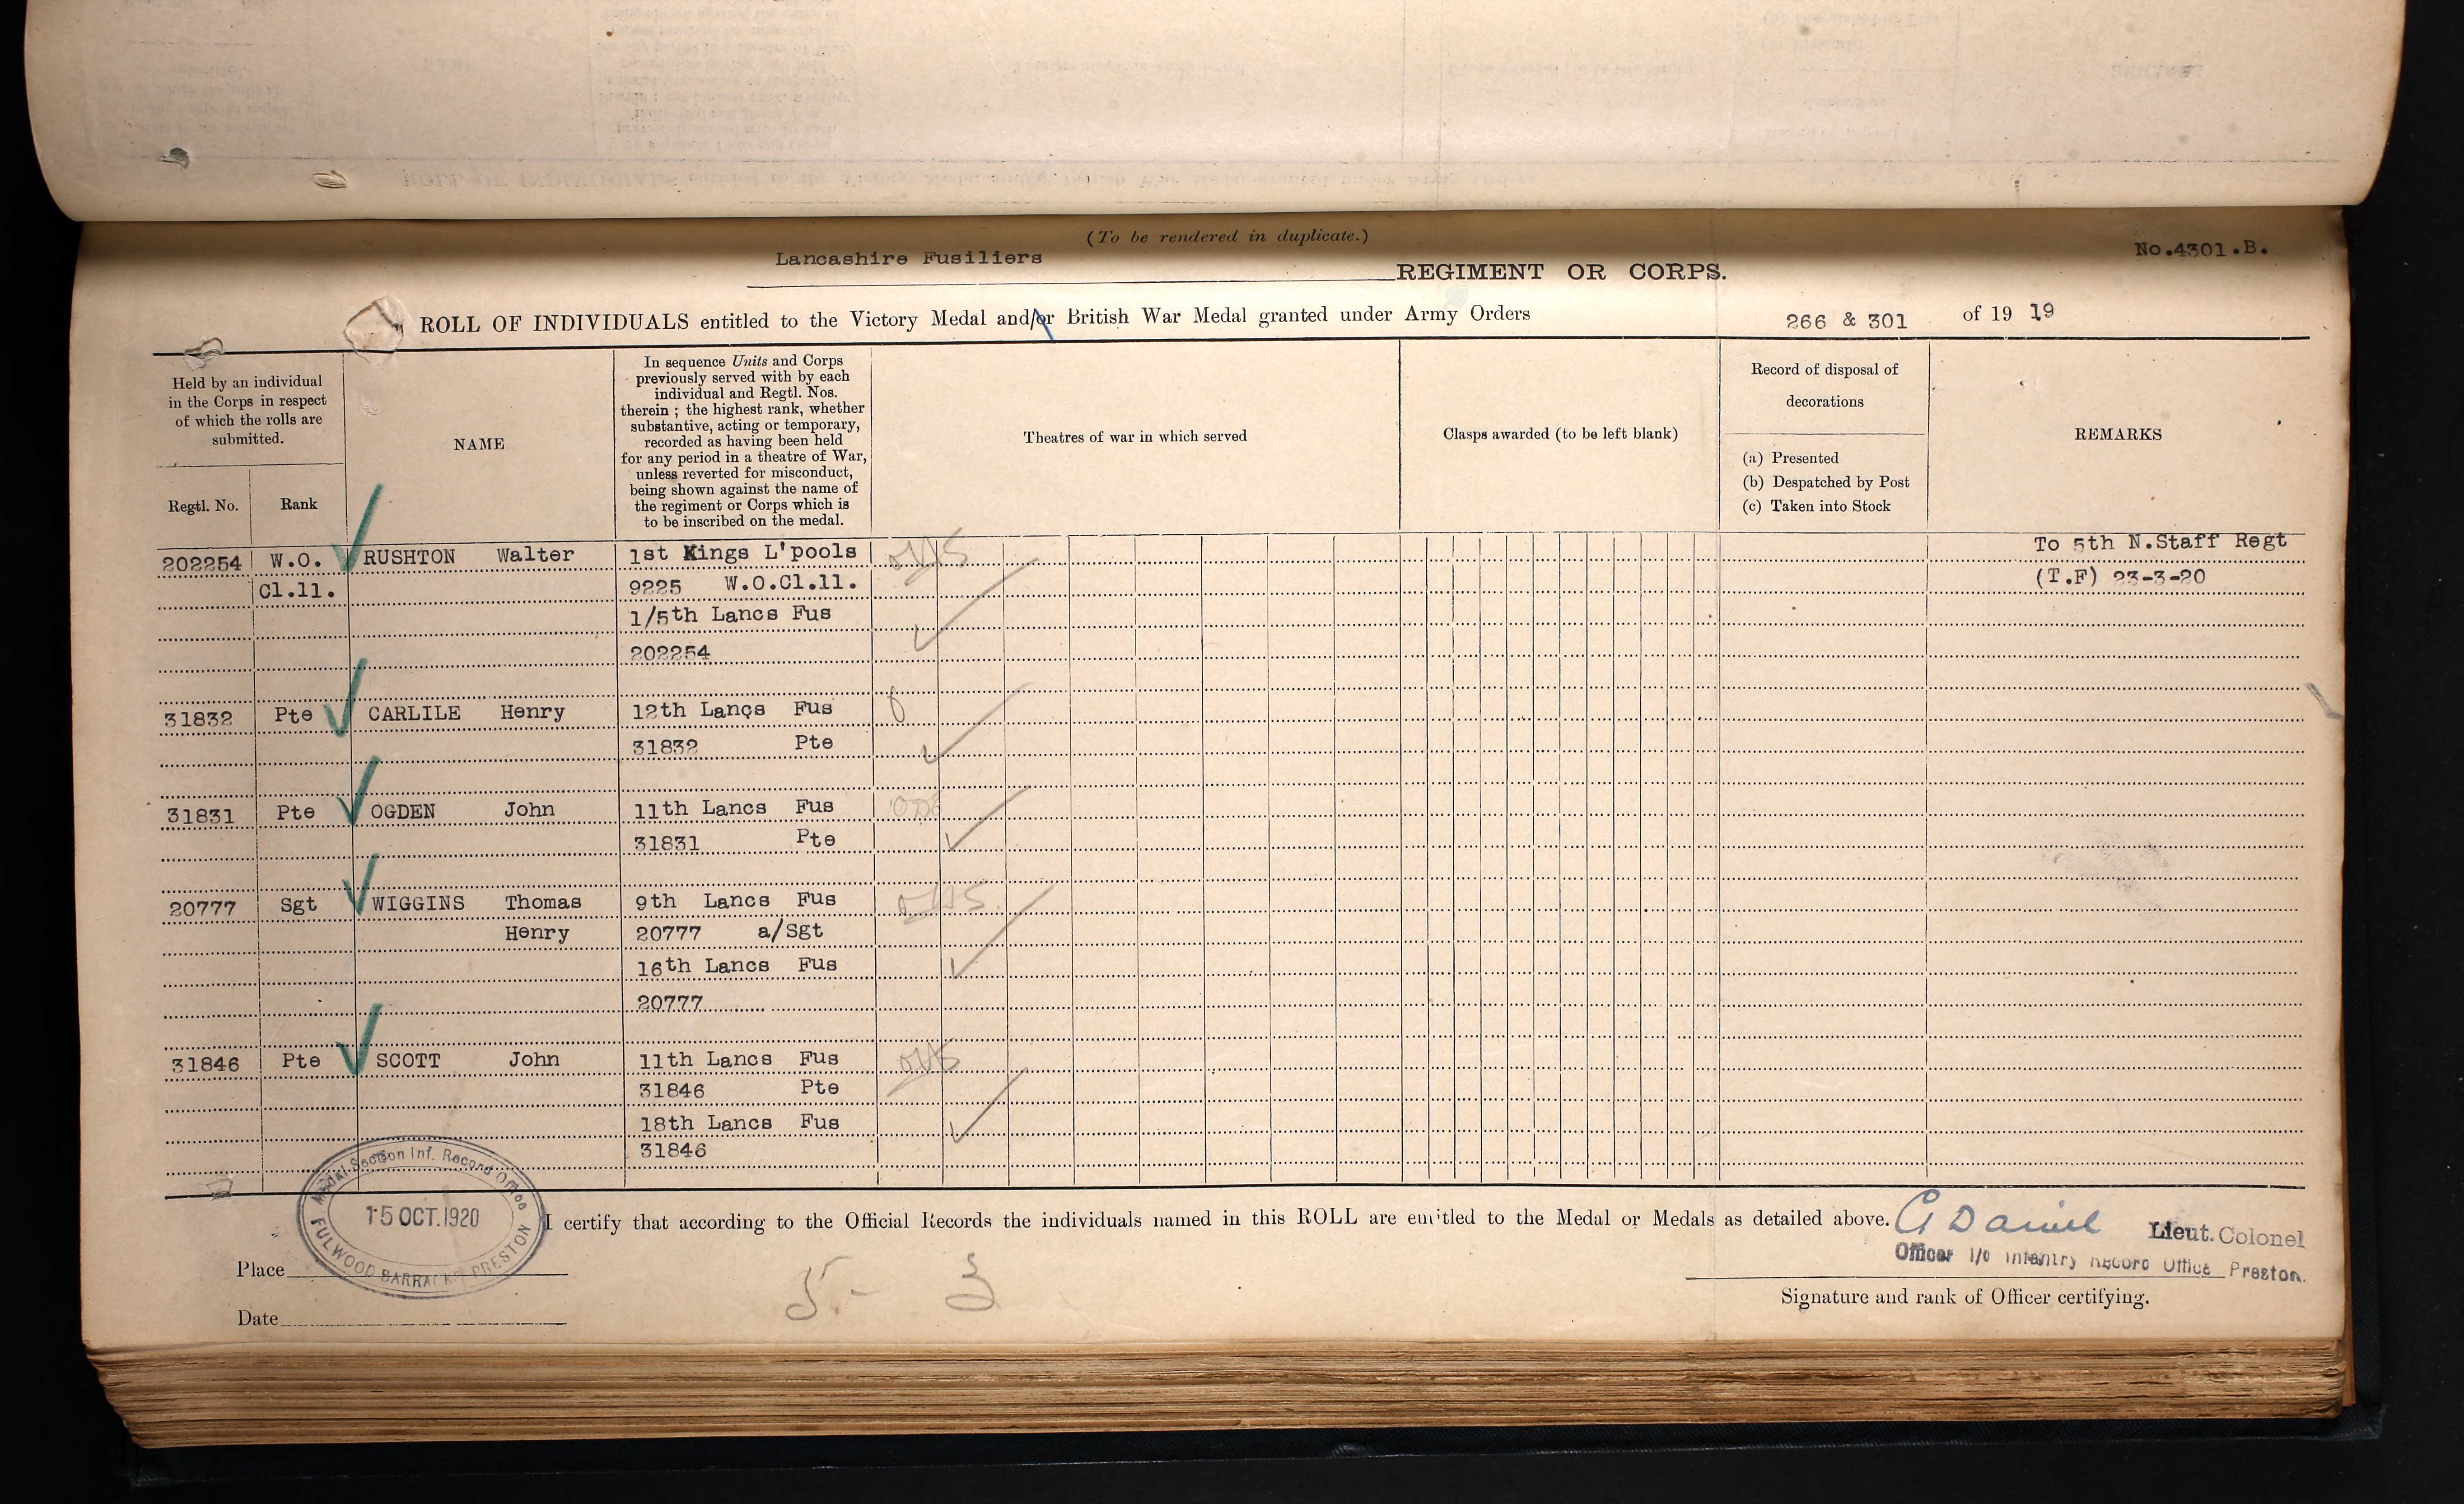 (To be rendered in duplicate.)
No.4301.B.
Lancashire Fusiliers REGIMENT OR CORPS.
ROLL OF INDIVIDUALS entitled to the Victory Medal and/or British War Medal granted under Army Orders 266 & 301 of 19 19
Held by an individual
in the Corps in respect
of which the rolls are
submitted.
Regtl. No.
Rank
NAME
In sequence Units and Corps
previously served with by each
individual and Regtl. Nos.
therein ; the highest rank, whether
substantive, acting or temporary,
recorded as having been held
for any period in a theatre of War,
unless reverted for misconduct,
being shown against the name of
the regiment or Corps which is
to be inscribed on the medal.
Theatres of war in which served
Clasps awarded (to be left blank)
Record of disposal of
decorations
(a) Presented
(b) Despatched by Post
(c) Taken into Stock
REMARKS
202254 W.O. RUSHTON Walter 1st Kings L'pools To 5th N.Staff Regt
Cl.11. 9225 W.O.Cl.11. (T.F) 23-3-20
1/5th Lancs Fus
202254
31832 Pte CARLILE Henry 12th Lancs Fus
31832 Pte
31831 Pte OGDEN John 11th Lancs Fus
31831 Pte
20777 Sgt WIGGINS Thomas 9th Lancs Fus
Henry 20777 a/Sgt
16th Lancs Fus
20777
31846 Pte SCOTT John 11th Lancs Fus
31846 Pte
18th Lancs Fus
31846
Medal Section Inf. Record Office
15 OCT. 1920
FULWOOD BARRACKS PRESTON
I certify that according to the Official Records the individuals named in this ROLL are entitled to the Medal or Medals as detailed above. G Daniel Lieut. Colonel
Officer I/c Infantry Record Office Preston.
Place
5.- 3
Signature and rank of Officer certifying.
Date